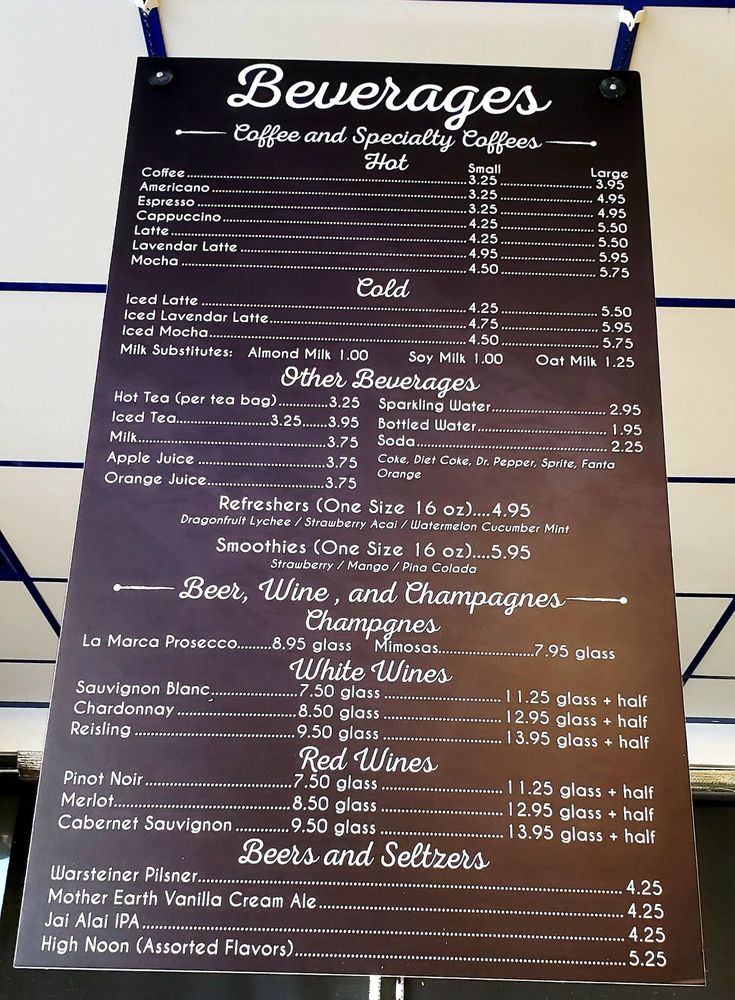 Beverages
Coffee and Specialty Coffees
Hot Small Large
Coffee 3.25 3.95
Americano 3.25 4.95
Espresso 3.25 4.95
Cappuccino 4.25 5.50
Latte 4.25 5.50
Lavendar Latte 4.95 5.95
Mocha 4.50 5.75
Cold
Iced Latte 4.25 5.50
Iced Lavendar Latte 4.75 5.95
Iced Mocha 4.50 5.75
Milk Substitutes: Almond Milk 1.00 Soy Milk 1.00 Oat Milk 1.25
Other Beverages
Hot Tea (per tea bag) 3.25
Iced Tea 3.25 3.95
Milk 3.75
Apple Juice 3.75
Orange Juice 3.75
Sparkling Water 2.95
Bottled Water 1.95
Soda 2.25
Coke, Diet Coke, Dr. Pepper, Sprite, Fanta
Orange
Refreshers (One Size 16 oz)....4.95
Dragonfruit Lychee / Strawberry Acai / Watermelon Cucumber Mint
Smoothies (One Size 16 oz)....5.95
Strawberry / Mango / Pina Colada
Beer, Wine , and Champagnes
Champgnes
La Marca Prosecco 8.95 glass Mimosas 7.95 glass
White Wines
Sauvignon Blanc 7.50 glass 11.25 glass + half
Chardonnay 8.50 glass 12.95 glass + half
Reisling 9.50 glass 13.95 glass + half
Red Wines
Pinot Noir 7.50 glass 11.25 glass + half
Merlot 8.50 glass 12.95 glass + half
Cabernet Sauvignon 9.50 glass 13.95 glass + half
Beers and Seltzers
Warsteiner Pilsner 4.25
Mother Earth Vanilla Cream Ale 4.25
Jai Alai IPA 4.25
High Noon (Assorted Flavors) 5.25